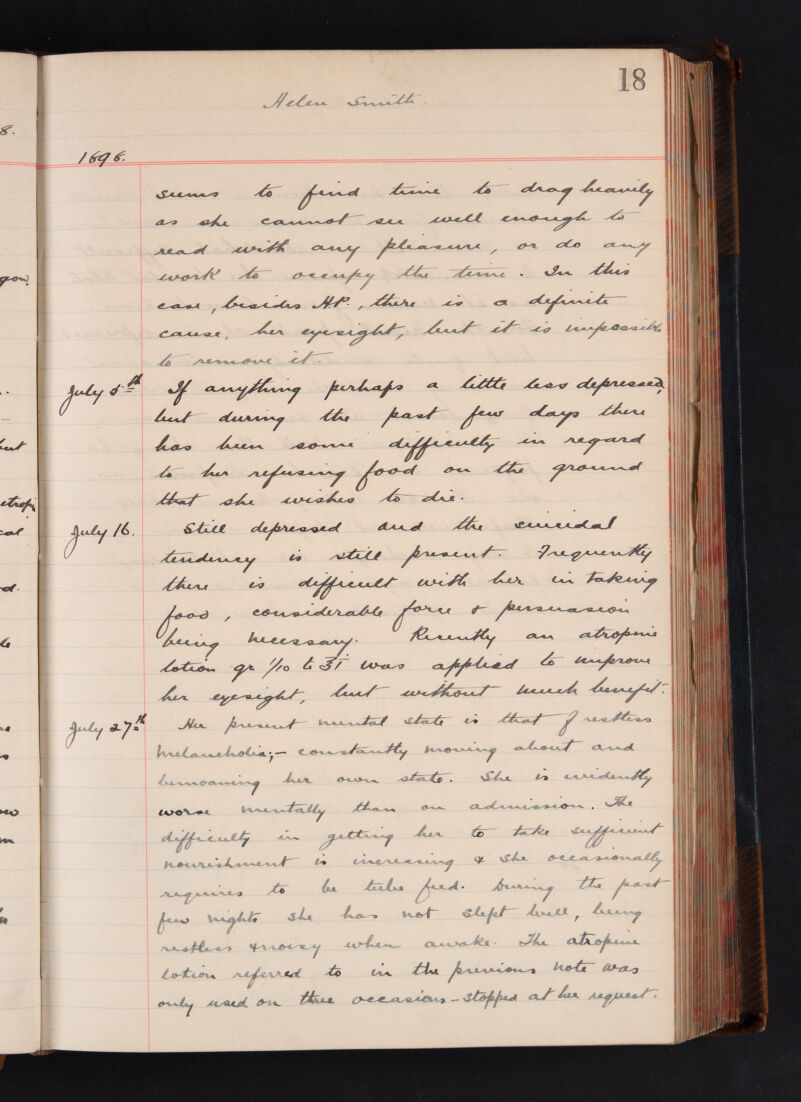 18
Helen Smith.
8.
1898.
seems to find time to drag heavily
as she cannot see well enough to
read with any pleasure, or do any
work to occupy the time. In this
case, besides H.P., there is a definite
cause, her eyesight, but it is impossible
to remove it.
July 5th If anything perhaps a little less depressed,
but during the past few days there
has been some difficulty in regard
to her refusing food on the ground
that she wishes to die.
July 16. Still depressed and the suicidal
tendency is still present. Frequently
there is difficult with her in taking
food, considerable force & persuasion
being necessary. Recently an atropine
lotion gr 1/10 to ʒi was applied to improve
her eyesight, but without much benefit.
July 27th Her present mental state is that of restless
melancholia;– constantly moving about and
bemoaning her own state. She is evidently
worse mentally than on admission. The
difficulty in getting her to take sufficient
nourishment is increasing & she occasionally
requires to be tube fed. During the past
few nights she has not slept well, being
restless & noisy when awake. The atropine
lotion referred to in the previous note was
only used on three occasions – stopped at her request.